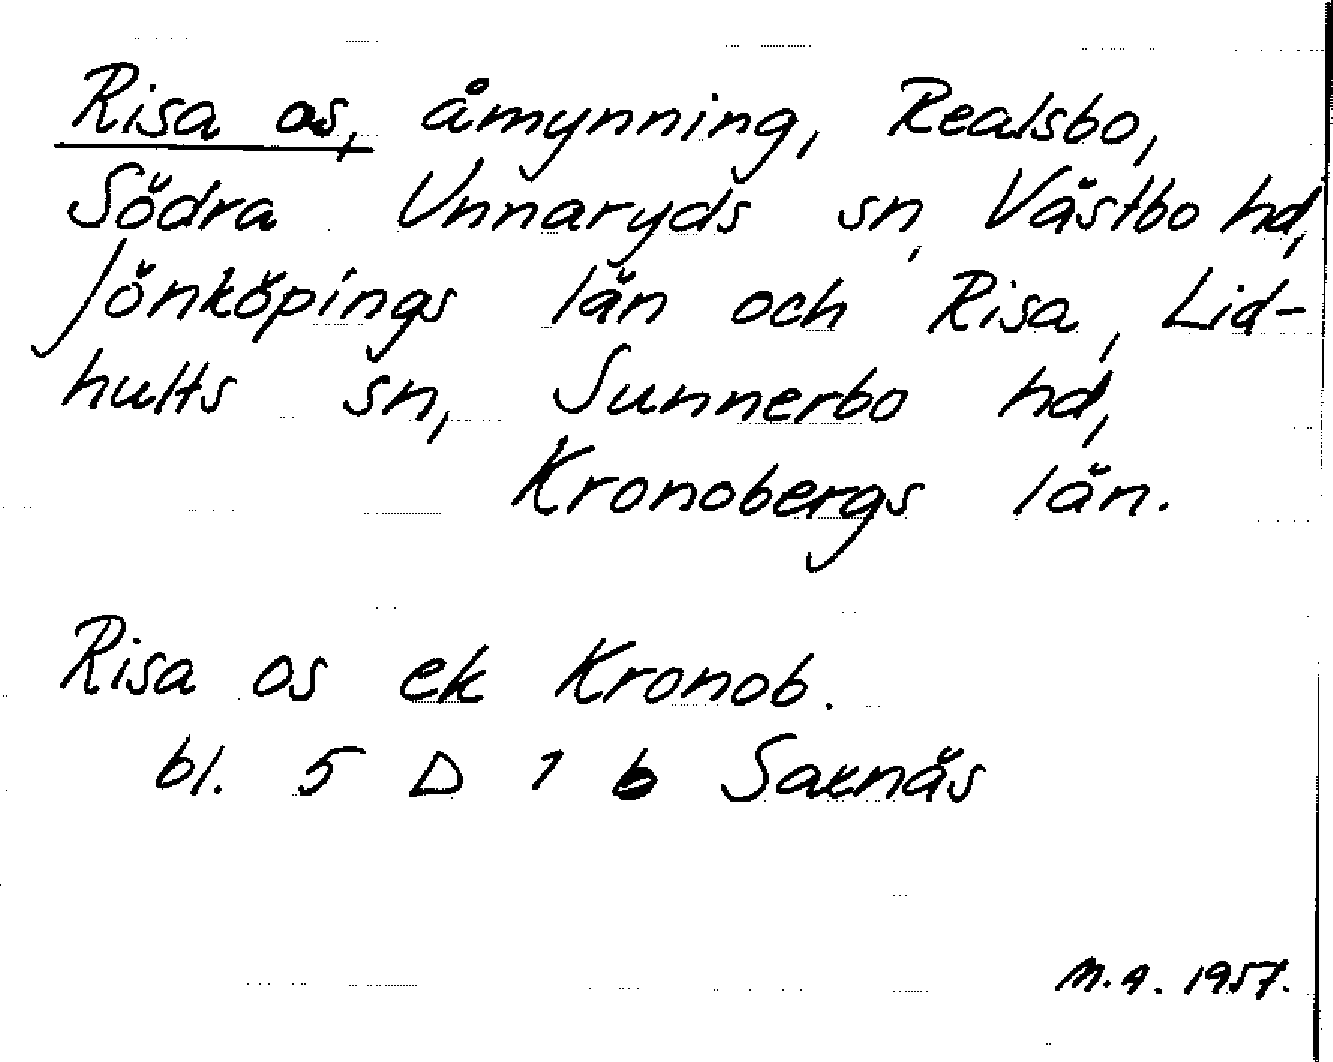 Risa os, åmynning, Realsbo,
Södra Unnaryds sn, Västbo hd,
Jönköpings län och Risa, Lid-
hults sn, Sunnerbo hd,
Kronobergs län.
Risa os ek Kronob.
bl. 5 D 1 b Saxnäs
M.A. 1957.